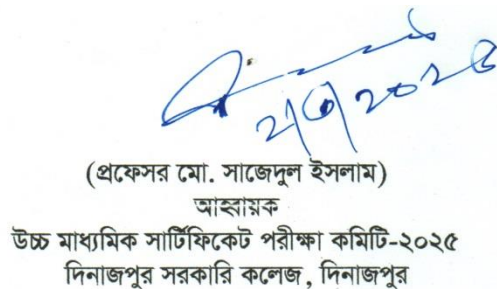 (প্রফেসর মো. সাজেদুল ইসলাম)
আহ্বায়ক
উচ্চ মাধ্যমিক সার্টিফিকেট পরীক্ষা কমিটি-২০২৫
দিনাজপুর সরকারি কলেজ, দিনাজপুর